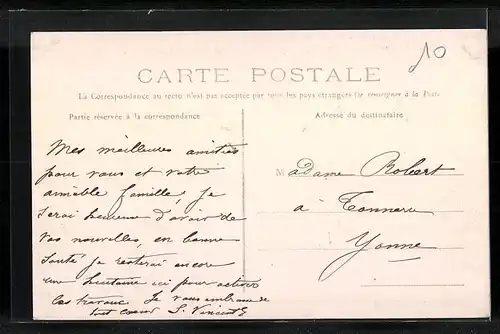 10
CARTE POSTALE
La Correspondance au recto n'est pas acceptée par tous les pays étrangers (Se renseigner à la Poste
Partie réservée à la correspondance
Adresse du destinataire
Mes meilleures amitiés
pour vous et votre
aimable famille, je
serai heureuse d'avoir de
vos nouvelles, en bonne
santé je resterai encore
une huitaine ici pour activer
les travaux Je vous embrasse de
tout coeur S. Vincent
Madame Robert
à Tonnerre
Yonne